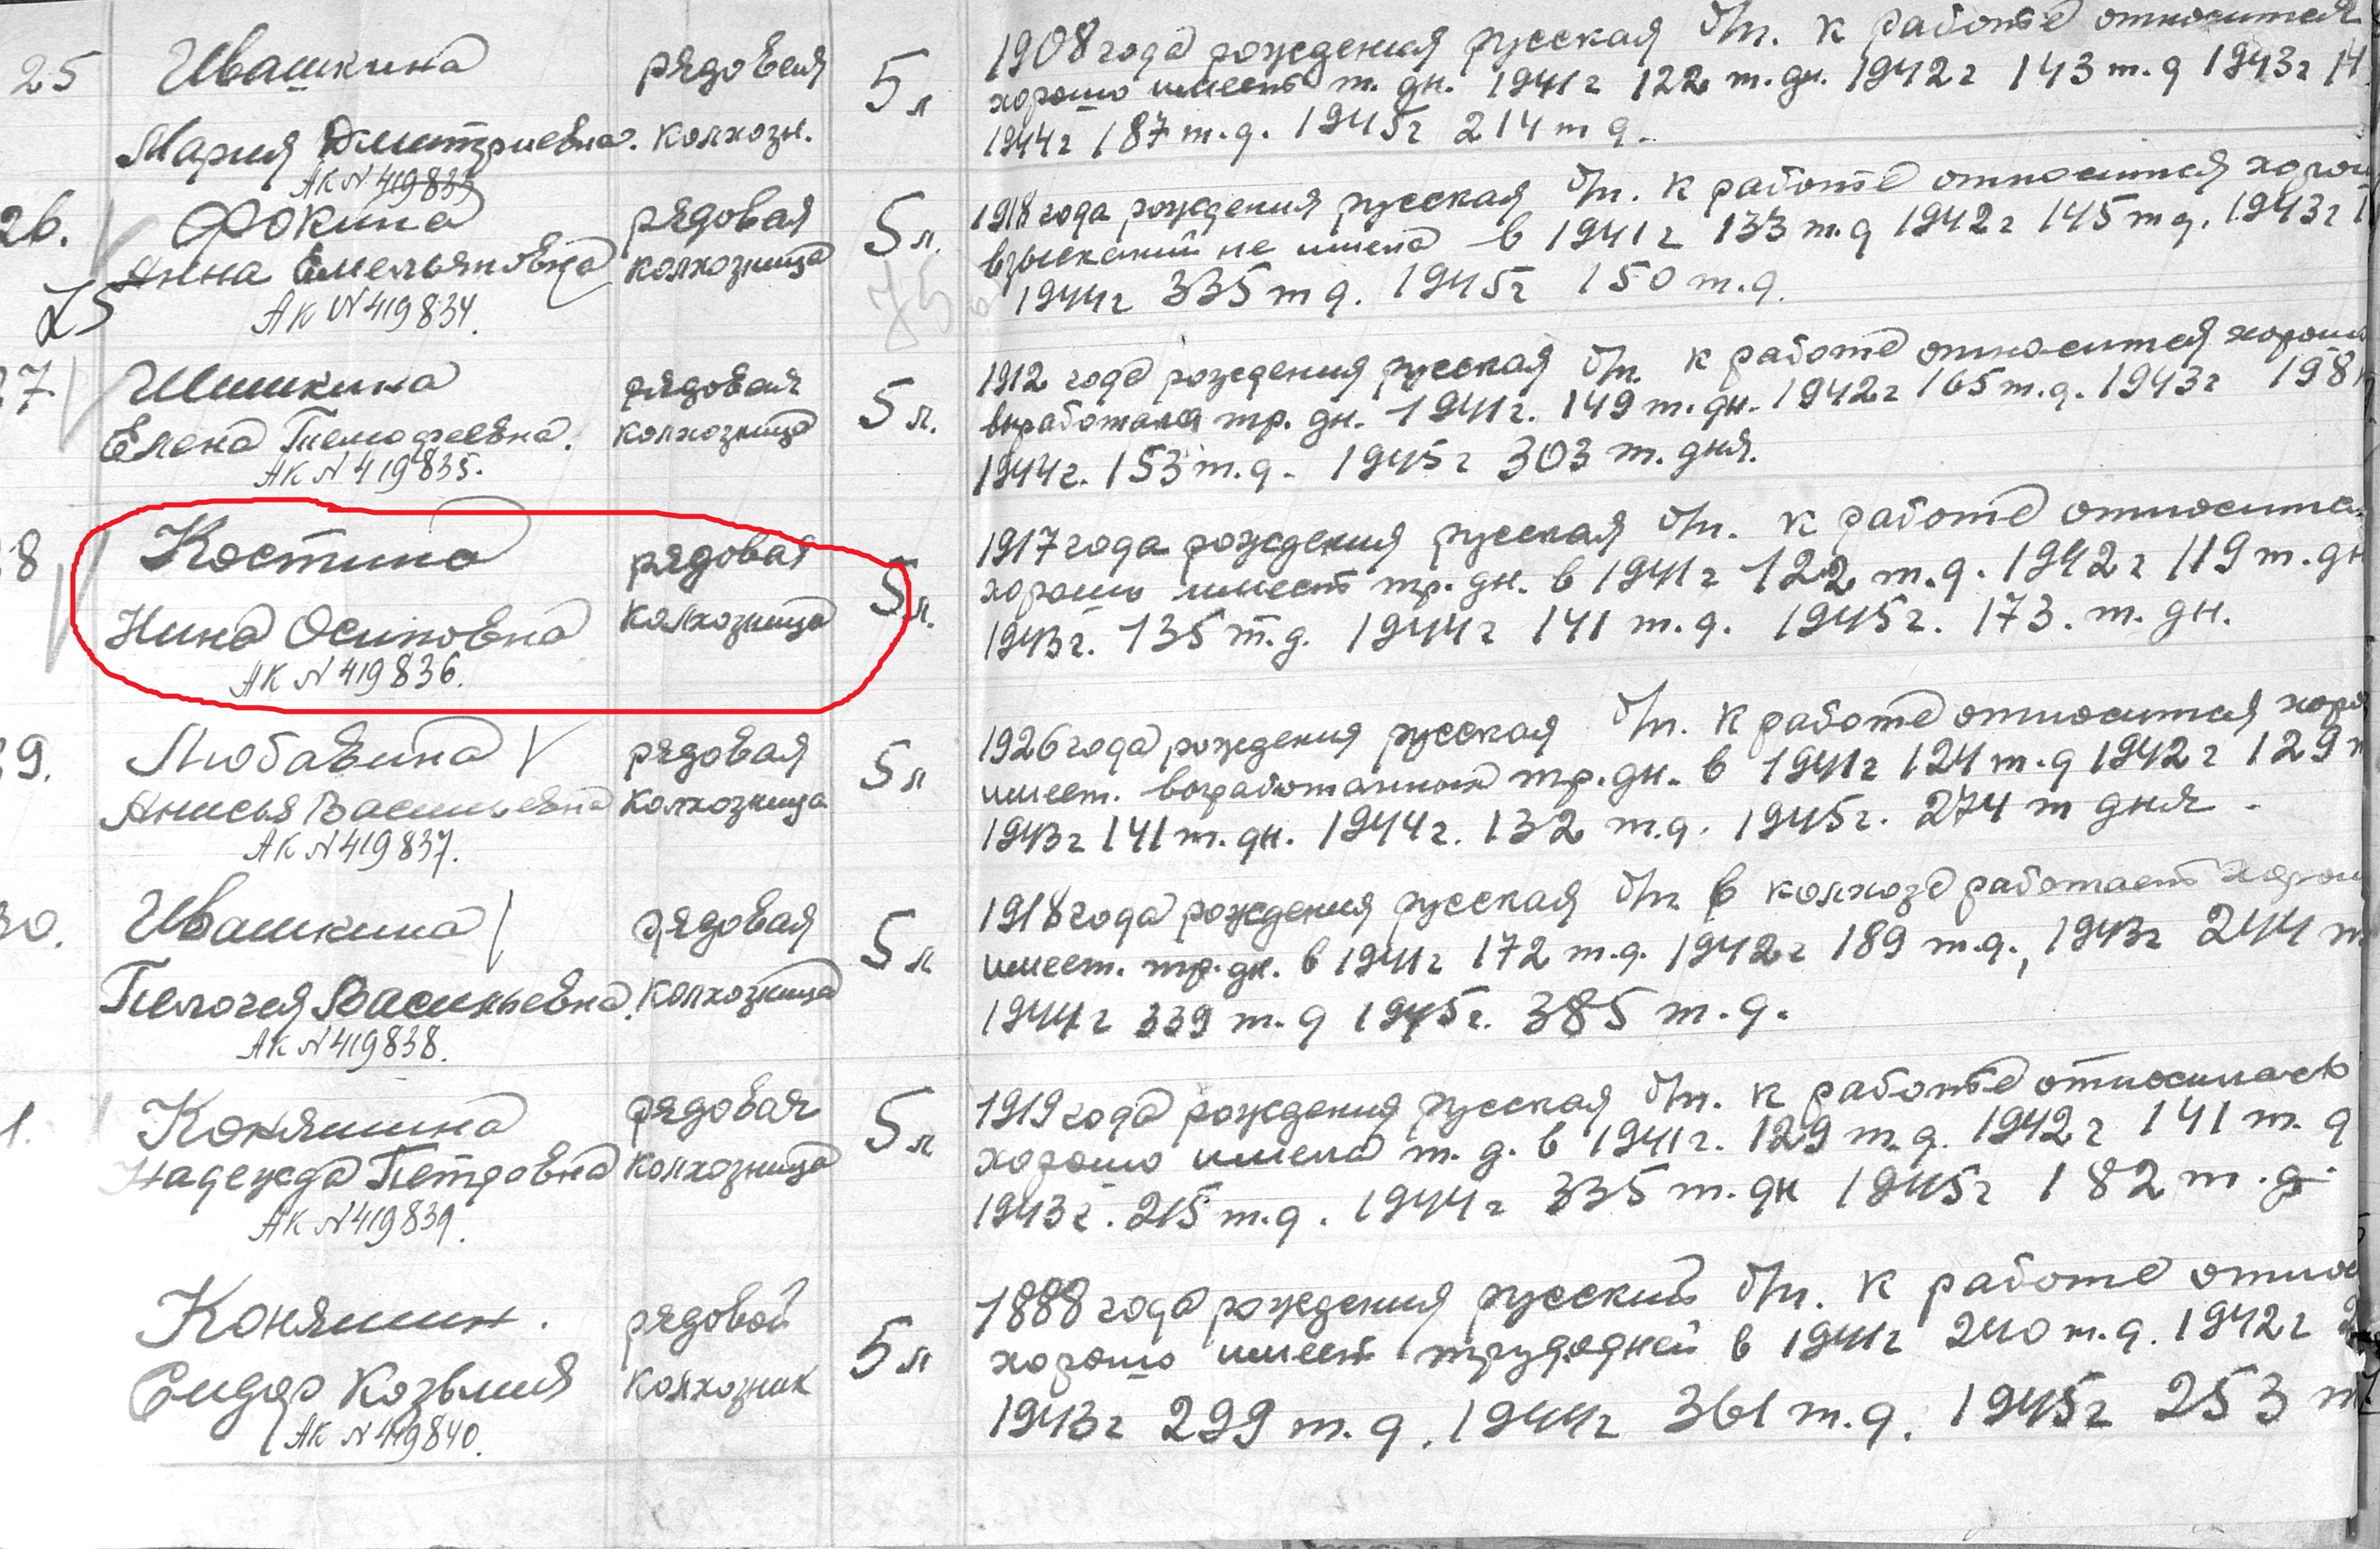 25 Ивашкина рядовая 5 л 1908 года рождения русская б/п. к работе относится
хорошо имеет т. дн. 1941 г 122 т. дн. 1942 г 143 т. д 1943 г 14
Мария Дмитриевна. колхозн. 1944 г 187 т. д. 1945 г 214 т д.
АК N 419833
26. Фокина рядовая 5 л. 1918 года рождения русская б/п. к работе относится хорош
Анна Емельяновна колхозница взысканий не имела в 1941 г 133 т. д 1942 г 145 т д. 1943 г 1
АК N 419834. 1944 г 335 т д. 1945 г 150 т. д.
25
75
27 Шишкина рядовая 5 л. 1912 года рождения русская б/п. к работе относится хорошо
Елена Тимофеевна. колхозница выработала тр. дн. 1941 г. 149 т. дн. 1942 г 165 т. д. 1943 г 198
АК N 419835. 1944 г. 153 т. д. 1945 г 303 т. дня.
28 Костина рядовая 5 л. 1917 года рождения русская б/п. к работе относится
Нина Осиповна колхозница хорошо имеет тр. дн. в 1941 г 122 т. д. 1942 г 119 т. дн
АК N 419836. 1943 г. 135 т. д. 1944 г 141 т. д. 1945 г. 173. т. дн.
29. Любавина рядовая 5 л 1926 года рождения русская б/п. к работе относится хоро
Анисья Васильевна колхозница имеет. выработанных тр. дн. в 1941 г 124 т. д 1942 г 129
АК N 419837. 1943 г 141 т. дн. 1944 г. 132 т. д. 1945 г. 274 т дня.
30. Ивашкина рядовая 5 л 1918 года рождения русская б/п в колхозе работает хорош
Пелогея Васильевна. колхозница имеет. тр. дн. в 1941 г 172 т. д. 1942 г 189 т. д., 1943 г 244 т
АК N 419838. 1944 г 339 т. д 1945 г. 385 т. д.
1. Коняшина рядовая 5 л 1919 года рождения русская б/п. к работе относилась
Надежда Петровна колхозница хорошо имела т. д. в 1941 г. 129 т. д. 1942 г 141 т. д
АК N 419839. 1943 г. 215 т. д. 1944 г 335 т. дн 1945 г 182 т. д.
Коняшин. рядовой 5 л 1888 года рождения русский б/п. к работе относ
Сидор Козьмич колхозник хорошо имеет трудодней в 1941 г 240 т. д. 1942 г 2
АК N 419840. 1943 г 299 т. д. 1944 г 361 т. д. 1945 г 253 т